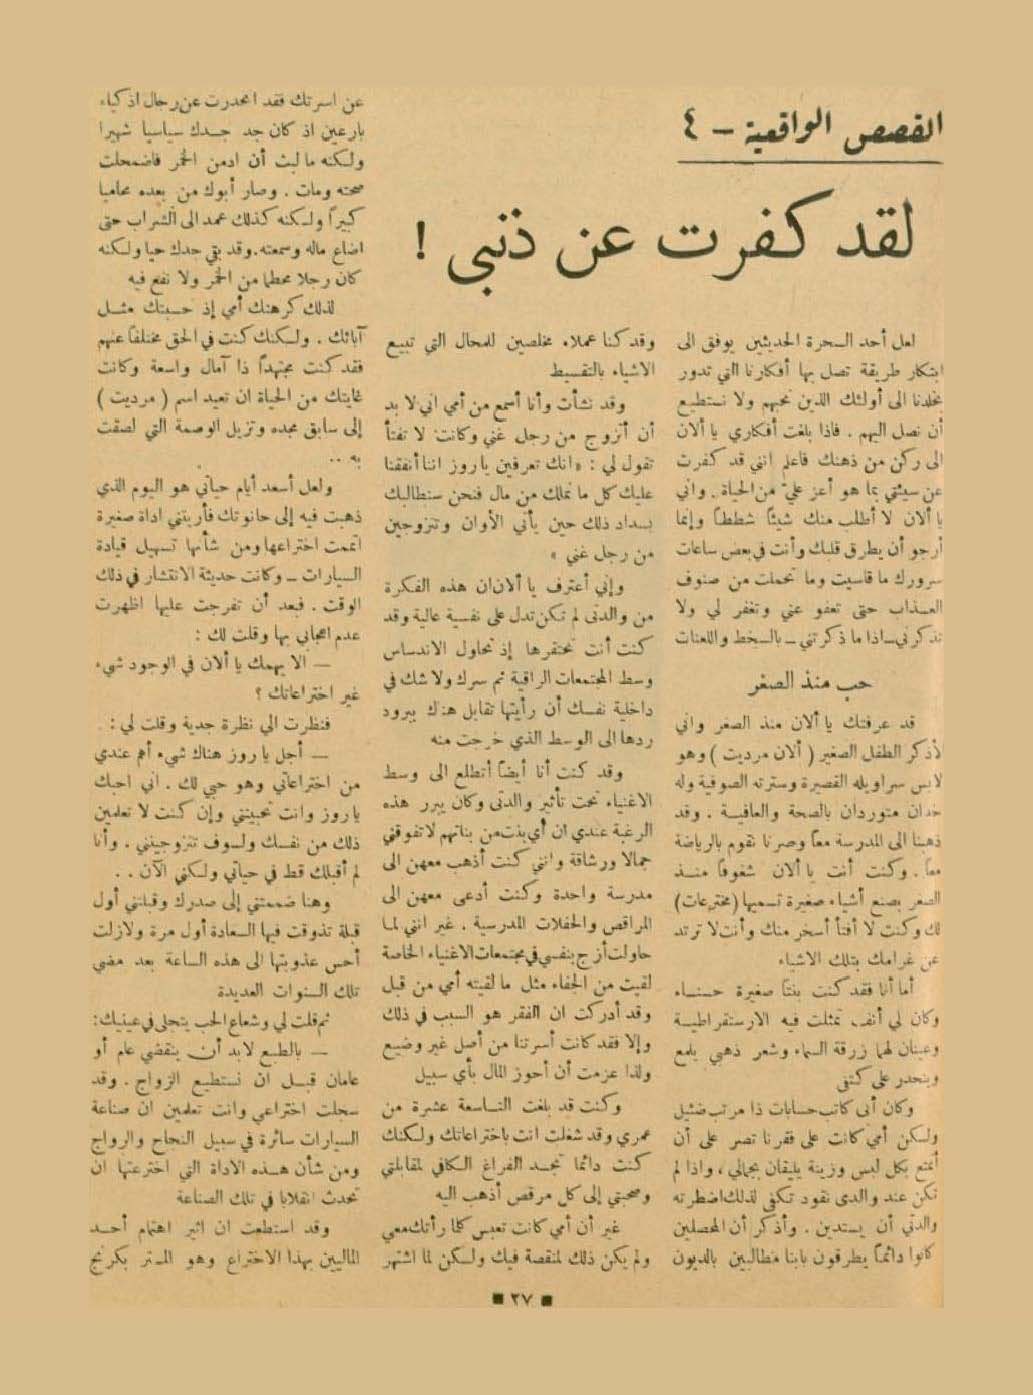 القصص الواقعية – ٤
لقد كفرت عن ذنبي !
لعل أحد السحرة الحديثين يوفق الى
ابتكار طريقة تصل بها أفكارنا التي تدور
بخلدنا الى أولئك الذين نحبهم ولا نستطيع
أن نصل اليهم . فاذا بلغت أفكاري يا ألان
الى ركن من ذهنك فاعلم انني قد كفرت
عن سيئتي بما هو أعز علي من الحياة . واني
يا ألان لا أطلب منك شيئاً شططاً وإنما
أرجو أن يطرق قلبك وأنت في بعض ساعات
سرورك ما قاسيت وما تحملت من صنوف
العذاب حتى تعفو عني وتغفر لي ولا
تذكرني – اذا ما ذكرتني – بالسخط واللعنات
حب منذ الصغر
قد عرفتك يا ألان منذ الصغر واني
لأذكر الطفل الصغير ( ألان مرديت ) وهو
لابس سراويله القصيرة وسترته الصوفية وله
خدان متوردان بالصحة والعافية . وقد
ذهبنا الى المدرسة معاً وصرنا نقوم بالرياضة
معاً . وكنت أنت يا ألان شغوفاً منذ
الصغر بصنع أشياء صغيرة تسميها (مخترعات)
لك وكنت لا أفتأ أسخر منك وأنت لا ترتد
عن غرامك بتلك الاشياء
أما أنا فقد كنت بنتاً صغيرة حسناء
وكان لي أنف تمثلت فيه الارستقراطية
وعينان لهما زرقة السماء وشعر ذهبي يلمع
وينحدر على كتفي
وكان أبي كاتب حسابات ذا مرتب ضئيل
ولكن أمي كانت على فقرنا تصر على أن
أتمتع بكل لبس وزينة يليقان بجمالي ، واذا لم
تكن عند والدي نقود تكفي لذلك اضطرته
والدتي أن يستدين . وأذكر أن المحصلين
كانوا دائماً يطرقون بابنا مطالبين بالديون
وقد كنا عملاء مخلصين للمحال التي تبيع
الاشياء بالتقسيط
وقد نشأت وأنا أسمع من أمي اني لا بد
أن أتزوج من رجل غني وكانت لا تفتأ
تقول لي : « انك تعرفين يا روز اننا أنفقنا
عليك كل ما نملك من مال فنحن سنطالبك
بسداد ذلك حين يأتي الأوان وتتزوجين
من رجل غني »
وإني أعترف يا ألان ان هذه الفكرة
من والدتي لم تكن تدل على نفسية عالية وقد
كنت أنت تحتقرها إذ تحاول الاندساس
وسط المجتمعات الراقية ثم سرك ولا شك في
داخلية نفسك أن رأيتها تقابل هناك ببرود
ردها الى الوسط الذي خرجت منه
وقد كنت أنا أيضاً أتطلع الى وسط
الاغنياء تحت تأثير والدتي وكان يبرر هذه
الرغبة عندي ان أي بنت من بناتهم لا تفوقني
جمالا ورشاقة وانني كنت أذهب معهن الى
مدرسة واحدة وكنت أدعى معهن الى
المراقص والحفلات المدرسية . غير انني لما
حاولت أزج بنفسي في مجتمعات الاغنياء الخاصة
لقيت من الجفاء مثل ما لقيته أمي من قبل
وقد أدركت ان الفقر هو السبب في ذلك
وإلا فقد كانت أسرتنا من أصل غير وضيع
ولذا عزمت أن أحوز المال بأي سبيل
وكنت قد بلغت التاسعة عشرة من
عمري وقد شغلت انت باختراعاتك ولكنك
كنت دائما تجد الفراغ الكافي لمقابلتي
وصحبتي إلى كل مرقص أذهب اليه
غير أن أمي كانت تعبس كلما رأتك معي
ولم يكن ذلك لمنقصة فيك ولكن لما اشتهر
عن اسرتك فقد انحدرت عن رجال اذكياء
بارعين اذ كان جد جدك سياسيا شهيرا
ولكنه ما لبث أن ادمن الخمر فاضمحلت
صحته ومات . وصار أبوك من بعده محاميا
كبيراً ولكنه كذلك عمد الى الشراب حتى
اضاع ماله وسمعته . وقد بقي جدك حيا ولكنه
كان رجلا محطما من الخمر ولا نفع فيه
لذلك كرهتك أمي إذ حسبتك مثل
آبائك . ولكنك كنت في الحق مختلفا عنهم
فقد كنت مجتهداً ذا آمال واسعة وكانت
غايتك من الحياة ان تعيد اسم ( مرديت )
إلى سابق مجده وتزيل الوصمة التي لصقت
به ..
ولعل أسعد أيام حياتي هو اليوم الذي
ذهبت فيه إلى حانوتك فأريتني اداة صغيرة
اتممت اختراعها ومن شأنها تسهيل قيادة
السيارات – وكانت حديثة الانتشار في ذلك
الوقت . فبعد أن تفرجت عليها اظهرت
عدم اعجابي بها وقلت لك :
— الا يهمك يا ألان في الوجود شيء
غير اختراعاتك ؟
فنظرت الي نظرة جدية وقلت لي :
— أجل يا روز هناك شيء أهم عندي
من اختراعاتي وهو حبي لك . اني احبك
يا روز وانت تحبينني وإن كنت لا تعلمين
ذلك من نفسك ولسوف تتزوجينني . وأنا
لم أقبلك قط في حياتي ولكني الآن ..
وهنا ضممتني إلى صدرك وقبلتني أول
قبلة تذوقت فيها السعادة أول مرة ولازلت
أحس عذوبتها الى هذه الساعة بعد مضي
تلك السنوات العديدة
ثم قلت لي وشعاع الحب يتجلى في عينيك:
— بالطبع لابد أن ينقضي عام أو
عامان قبل ان نستطيع الزواج . وقد
سجلت اختراعي وانت تعلمين ان صناعة
السيارات سائرة في سبيل النجاح والرواج
ومن شأن هذه الاداة التي اخترعتها ان
تحدث انقلابا في تلك الصناعة
وقد استطعت ان اثير اهتمام أحد
الماليين بهذا الاختراع وهو المستر بكرنج
■ ٢٧ ■